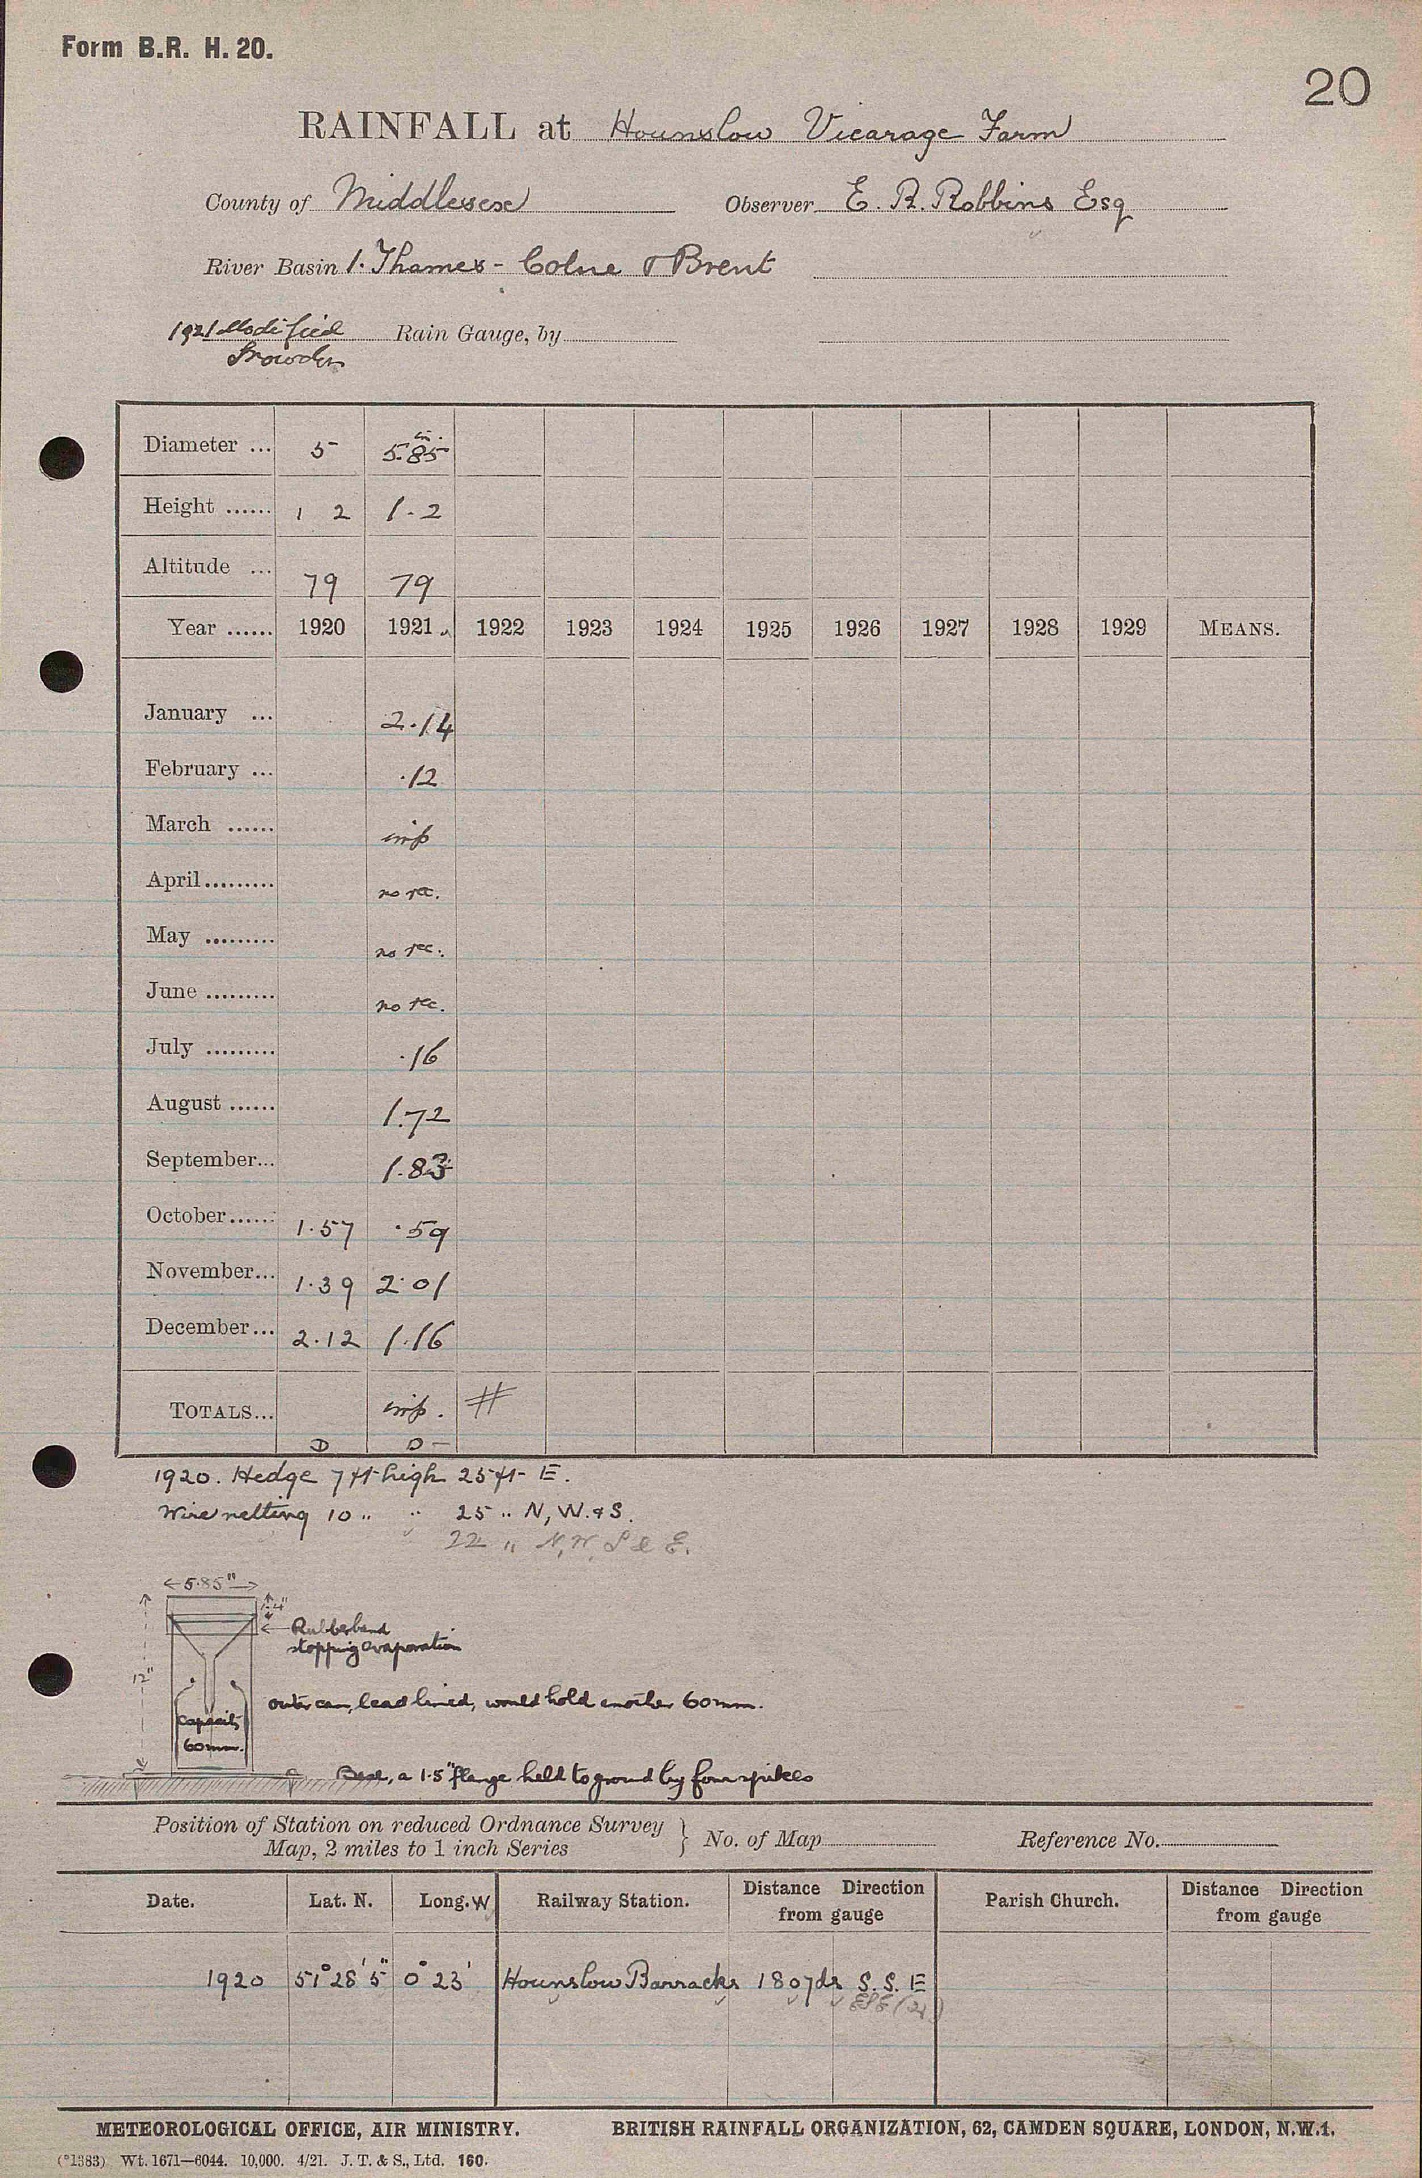 Form B.R. H. 20.
20
RAINFALL at Hounslow Vicarage Farm
County of Middlesex Observer E. R. Robbins Esq
River Basin 1. Thames - Colne & Brent
1921 Modified Rain Gauge, by
Snowdon
Diameter ... 5 5.85 in.
Height ...... 1 2 1-2
Altitude ... 79 79
Year ...... 1920 1921 1922 1923 1924 1925 1926 1927 1928 1929 MEANS.
January ... 2.14
February ... .12
March ...... imp
April ......... no rec.
May ......... no rec.
June ......... no rec.
July ......... .16
August ...... 1.72
September... 1.83
October...... 1.57 .59
November... 1.39 2.01
December... 2.12 1.16
TOTALS... imp. #
D D -
1920. Hedge 7 ft high 25 ft E.
Wire netting 10 " " 25 " N, W. & S.
22 " N, W, S & E.
5.85"
4"
Rubberband
stopping evaporation
12"
outer can, lead lined, would hold another 60mm.
Capacity
60mm.
Base, a 1.5" flange held to ground by four spikes
Position of Station on reduced Ordnance Survey
Map, 2 miles to 1 inch Series } No. of Map Reference No.
Date. Lat. N. Long. W Railway Station. Distance Direction from gauge Parish Church. Distance Direction from gauge
1920 51° 28' 5" 0° 23' Hounslow Barracks 180 yds S. S. E
ESE (21)
METEOROLOGICAL OFFICE, AIR MINISTRY. BRITISH RAINFALL ORGANIZATION, 62, CAMDEN SQUARE, LONDON, N.W.1.
(*1383) Wt. 1671—6044. 10,000. 4/21. J. T. & S., Ltd. 160.